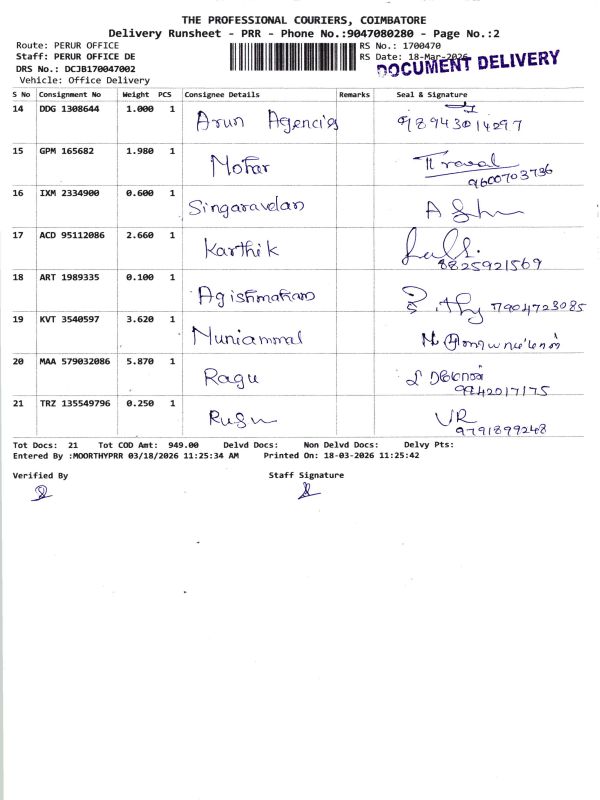 THE PROFESSIONAL COURIERS, COIMBATORE
Delivery Runsheet - PRR - Phone No.:9047080280 - Page No.:2
Route: PERUR OFFICE RS No.: 1700470
Staff: PERUR OFFICE DE RS Date: 18-Mar-2026
DOCUMENT DELIVERY
DRS No.: DCJB170047002
Vehicle: Office Delivery
S No Consignment No Weight PCS Consignee Details Remarks Seal & Signature
14 DDG 1308644 1.000 1 Arun Agencies 98943014297
15 GPM 165682 1.980 1 Mohar
9600703736
16 IXM 2334900 0.600 1 Singaravelan
17 ACD 95112086 2.660 1 Karthik
8825921569
18 ART 1989335 0.100 1 7904723085
19 KVT 3540597 3.620 1 Muniammal
20 MAA 579032086 5.870 1 Ragu
9942017175
21 TRZ 135549796 0.250 1 VR
9791899248
Tot Docs: 21 Tot COD Amt: 949.00 Delvd Docs: Non Delvd Docs: Delvy Pts:
Entered By :MOORTHYPRR 03/18/2026 11:25:34 AM Printed On: 18-03-2026 11:25:42
Verified By Staff Signature